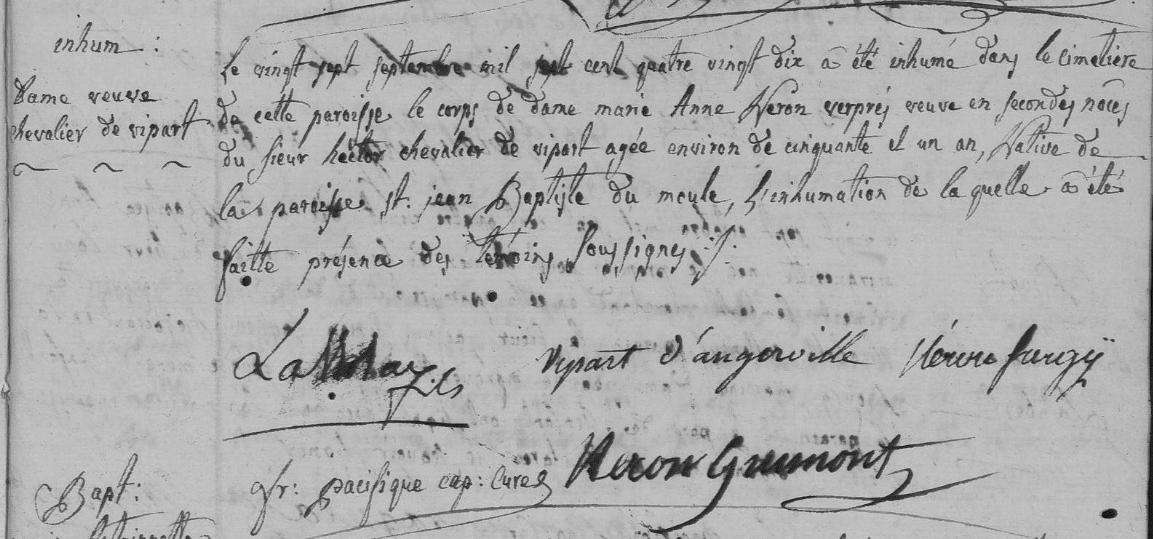 inhum :
Dame veuve
chevalier de vipart
Le vingt sept septembre mil sept cent quatre vingt dix a été inhumé dans le cimetiere
de cette paroisse le corps de dame marie Anne Neron verprés veuve en secondes nôces
du sieur hector chevalier de vipart agée environ de cinquante et un an, Native de
la paroisse st. jean Baptiste du moule, L'inhumation de la quelle a été
faitte présence des témoins soussignes ./.
fils
Vipart d'angerville
Néron
fr: pacifique cap: Curé
Neron Grumont
Bapt: